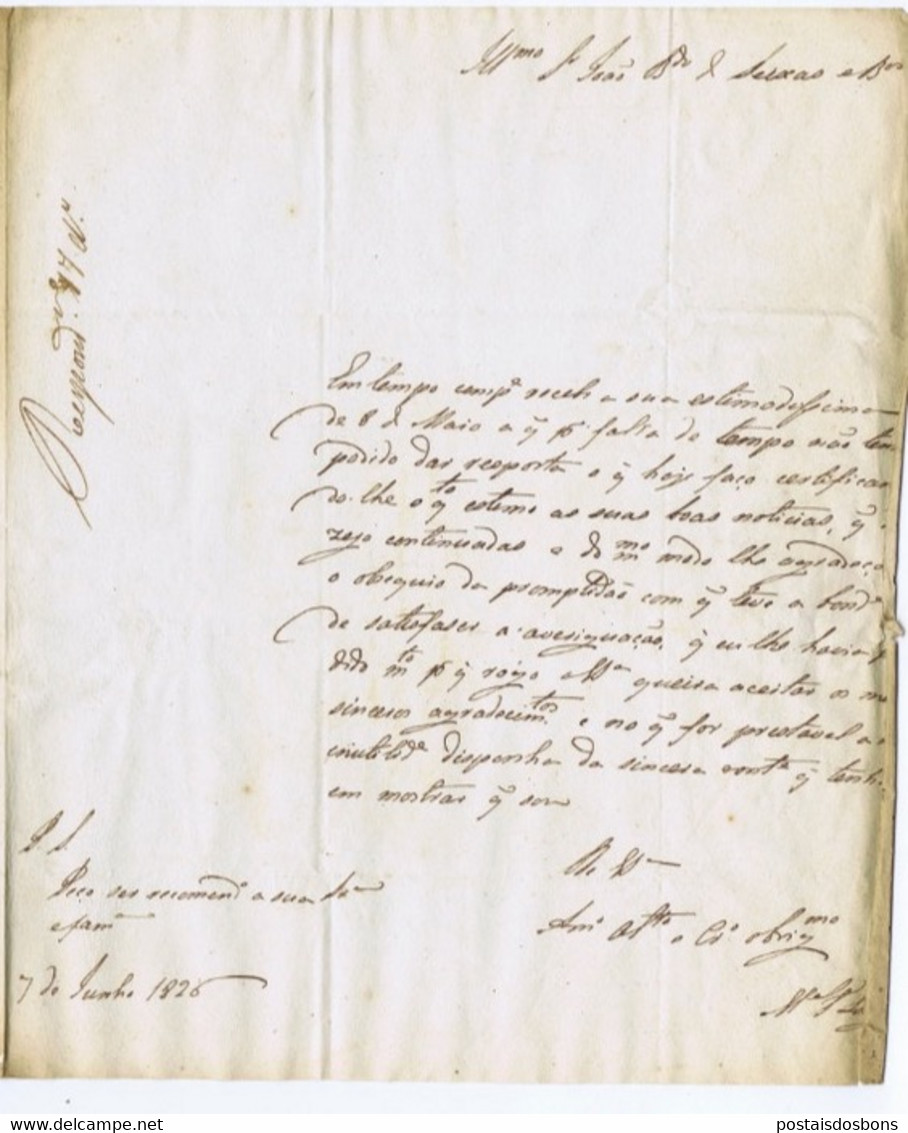 Illmo Sr João Bdo de Seixas e Bros
Respondi
Em tempo comp.e recebi a sua estimadissima
de 8 de Maio a q̃ pr falta de tempo não tem
podido dar resposta o q̃ hoje faço certifican
do-lhe o qto estimo as suas boas noticias, q̃
zejo continuadas e do mmo modo lhe agradeço
o obsequio da promptidão com q̃ teve a bond.e
de satisfaser a averiguação, q̃ eu lhe havia p
dido mto pr q̃ rogo a VSa queira aceitar os me
sinceros agradecimtos e no q̃ for prestavel a
inutilide disponha da sincera vonte q̃ tenh
em mostrar q̃ sou
De VSa
Amo Affto e Co obrigmo
P. S.
Peço ser recomendo a sua Sra
e fama
7 de Junho 1826
postaisdosbons
www.delcampe.net